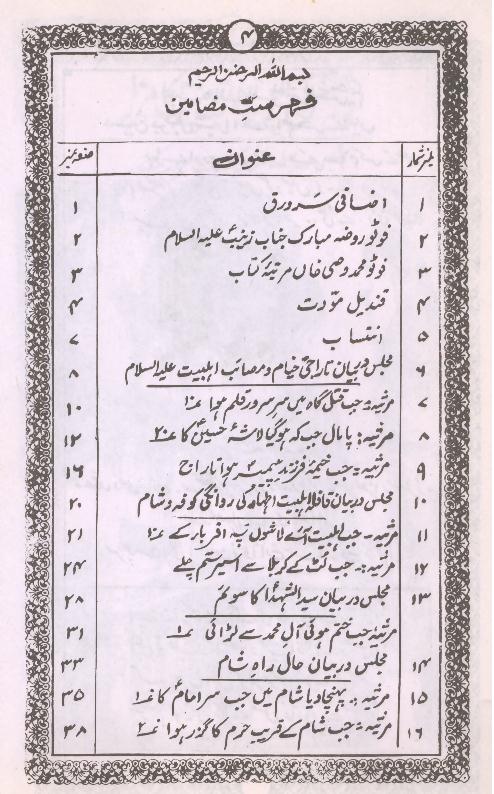 ۴
بسم اللہ الرحمٰن الرحیم
فہرستِ مضامین
نمبر شمار عنوان صفحہ نمبر
۱ اضافی سرورق ۱
۲ فوٹو روضہ مبارک جناب زینبؑ علیہ السلام ۲
۳ فوٹو محمد وصی خاں مرتبۂ کتاب ۳
۴ قندیل مودت ۴
۵ انتساب ۷
۶ مجلس دربیان تاراجیٔ خیام و مصائب اہلبیت علیہ السلام ۸
۷ مرثیہ:۔ جب قتل گاہ میں سرِ سرور قلم ہوا ۱ ۱۰
۸ مرثیہ: پامال جب کہ ہوگیا لاشۂ حسینؑ کا ۲ ۱۲
۹ مرثیہ:۔ جب خیمۂ فرزند پیمبرؐ ہوا تاراج ۱۶
۱۰ مجلس دربیان قافلہ اہلبیت اطہار کی روانگی کوفہ و شام ۲۰
۱۱ مرثیہ۔ جب اہلبیت آئے لاشوں پہ اقربا کے ۱ ۲۱
۱۲ مرثیہ:۔ جب لٹ کے کربلا سے اسیر ستم چلے ۲۴
۱۳ مجلس دربیان سید الشہداؑ کا سوئم ۲۸
مرثیہ جب ختم ہوئی آلِ محمد سے لڑائی ۱ ۳۱
۱۴ مجلس دربیان حال راہِ شام ۳۳
۱۵ مرثیہ:۔ پہنچا دیا شام میں جب سر امامؑ کا ۱ ۳۵
۱۶ مرثیہ:۔ جب شام کے قریب حرم کا گزر ہوا ۲ ۳۸